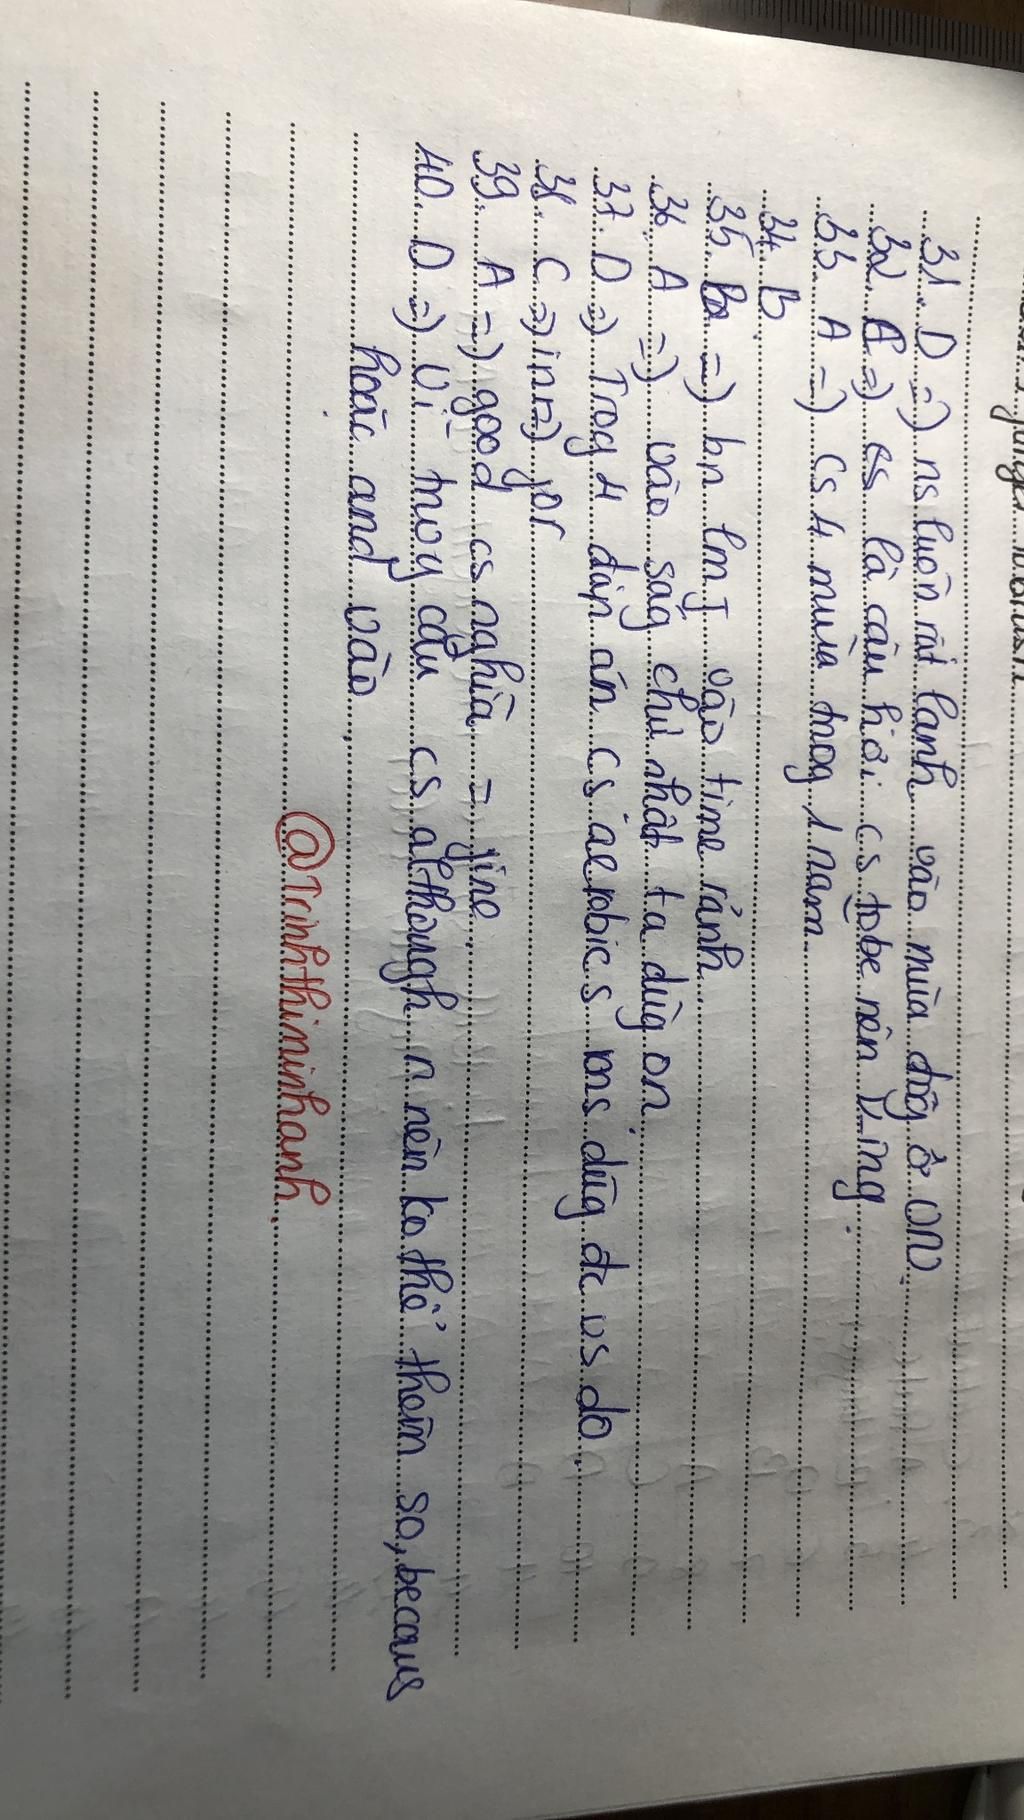 31. D => ns luôn rất lạnh vào mùa đôg ở VN.
32 A => es là câu hỏi cs tobe nên V-ing.
33 A => cs 4 mùa trog 1 năm
34. B.
35. B => bn lmj vào time rảnh
36. A => vào ság chủ nhật ta dùg on.
37. D => Trog 4 đáp án cs aerobics ms dùg đc vs do.
38. C => in => for
39. A => good cs nghĩa = fine.
40. D => Vì trog câu cs although n nên ko thể thêm so, becaus
hoặc and vào.
@Trinhthiminhanh.